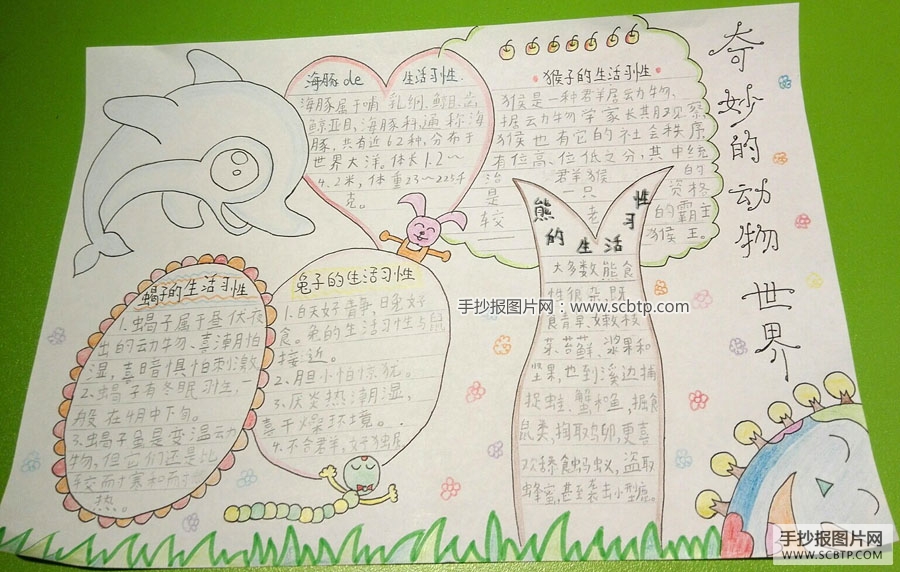 奇妙的动物世界
海豚de 生活习性.
海豚属于哺乳纲、鲸目、齿
鲸亚目,海豚科通称海
豚,共有近62种,分布于
世界大洋。体长1.2～
4.2米,体重23～225千
克。
猴子的生活习性
猴是一种群居动物、
据动物学家长期观察
猴也有它的社会秩序
有位高、位低之分,其中统
治 群猴 的
是 一只 资格
较 老 的霸主
猴王。
熊的生活习性
大多数能食
性很杂,既
食青草、嫩枝
芽、苔藓、浆果和
坚果,也到溪边捕
捉蛙、蟹和鱼,掘食
鼠类,掏取鸟卵,更喜
欢舔食蚂蚁,盗取
蜂蜜,甚至袭击小型鹿。
蝎子的生活习性
1.虫蝎子属于昼伏夜
出的动物、喜潮怕
湿,喜暗惧怕刺激
2.虫蝎子有冬眠习性,一
般在4月中下旬。
3.虫蝎子虽是变温动
物,但它们还是比
较耐寒和而
热.
兔子的生活习性
1.白天好静,日兔好
食。兔的生活习性与鼠
接近。
2、胆小怕惊扰。
3、厌炎热潮湿,
喜干燥环境。
4.不合群,好独居
手抄报图片网:www.scbtp.com
手抄报图片网
WWW.SCBTP.COM